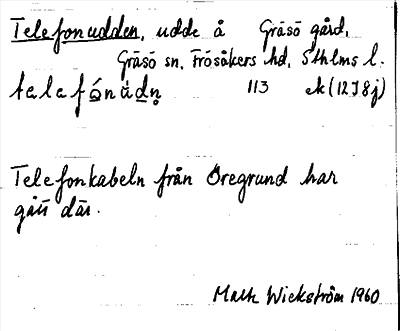 Telefonudden, udde å Gräsö gård,
Gräsö sn, Frösåkers hd, Sthlms l.
telefónùdn̥ 113 ek (12I8j)
Telefonkabeln från Öregrund har
gått där.
Math Wickström 1960